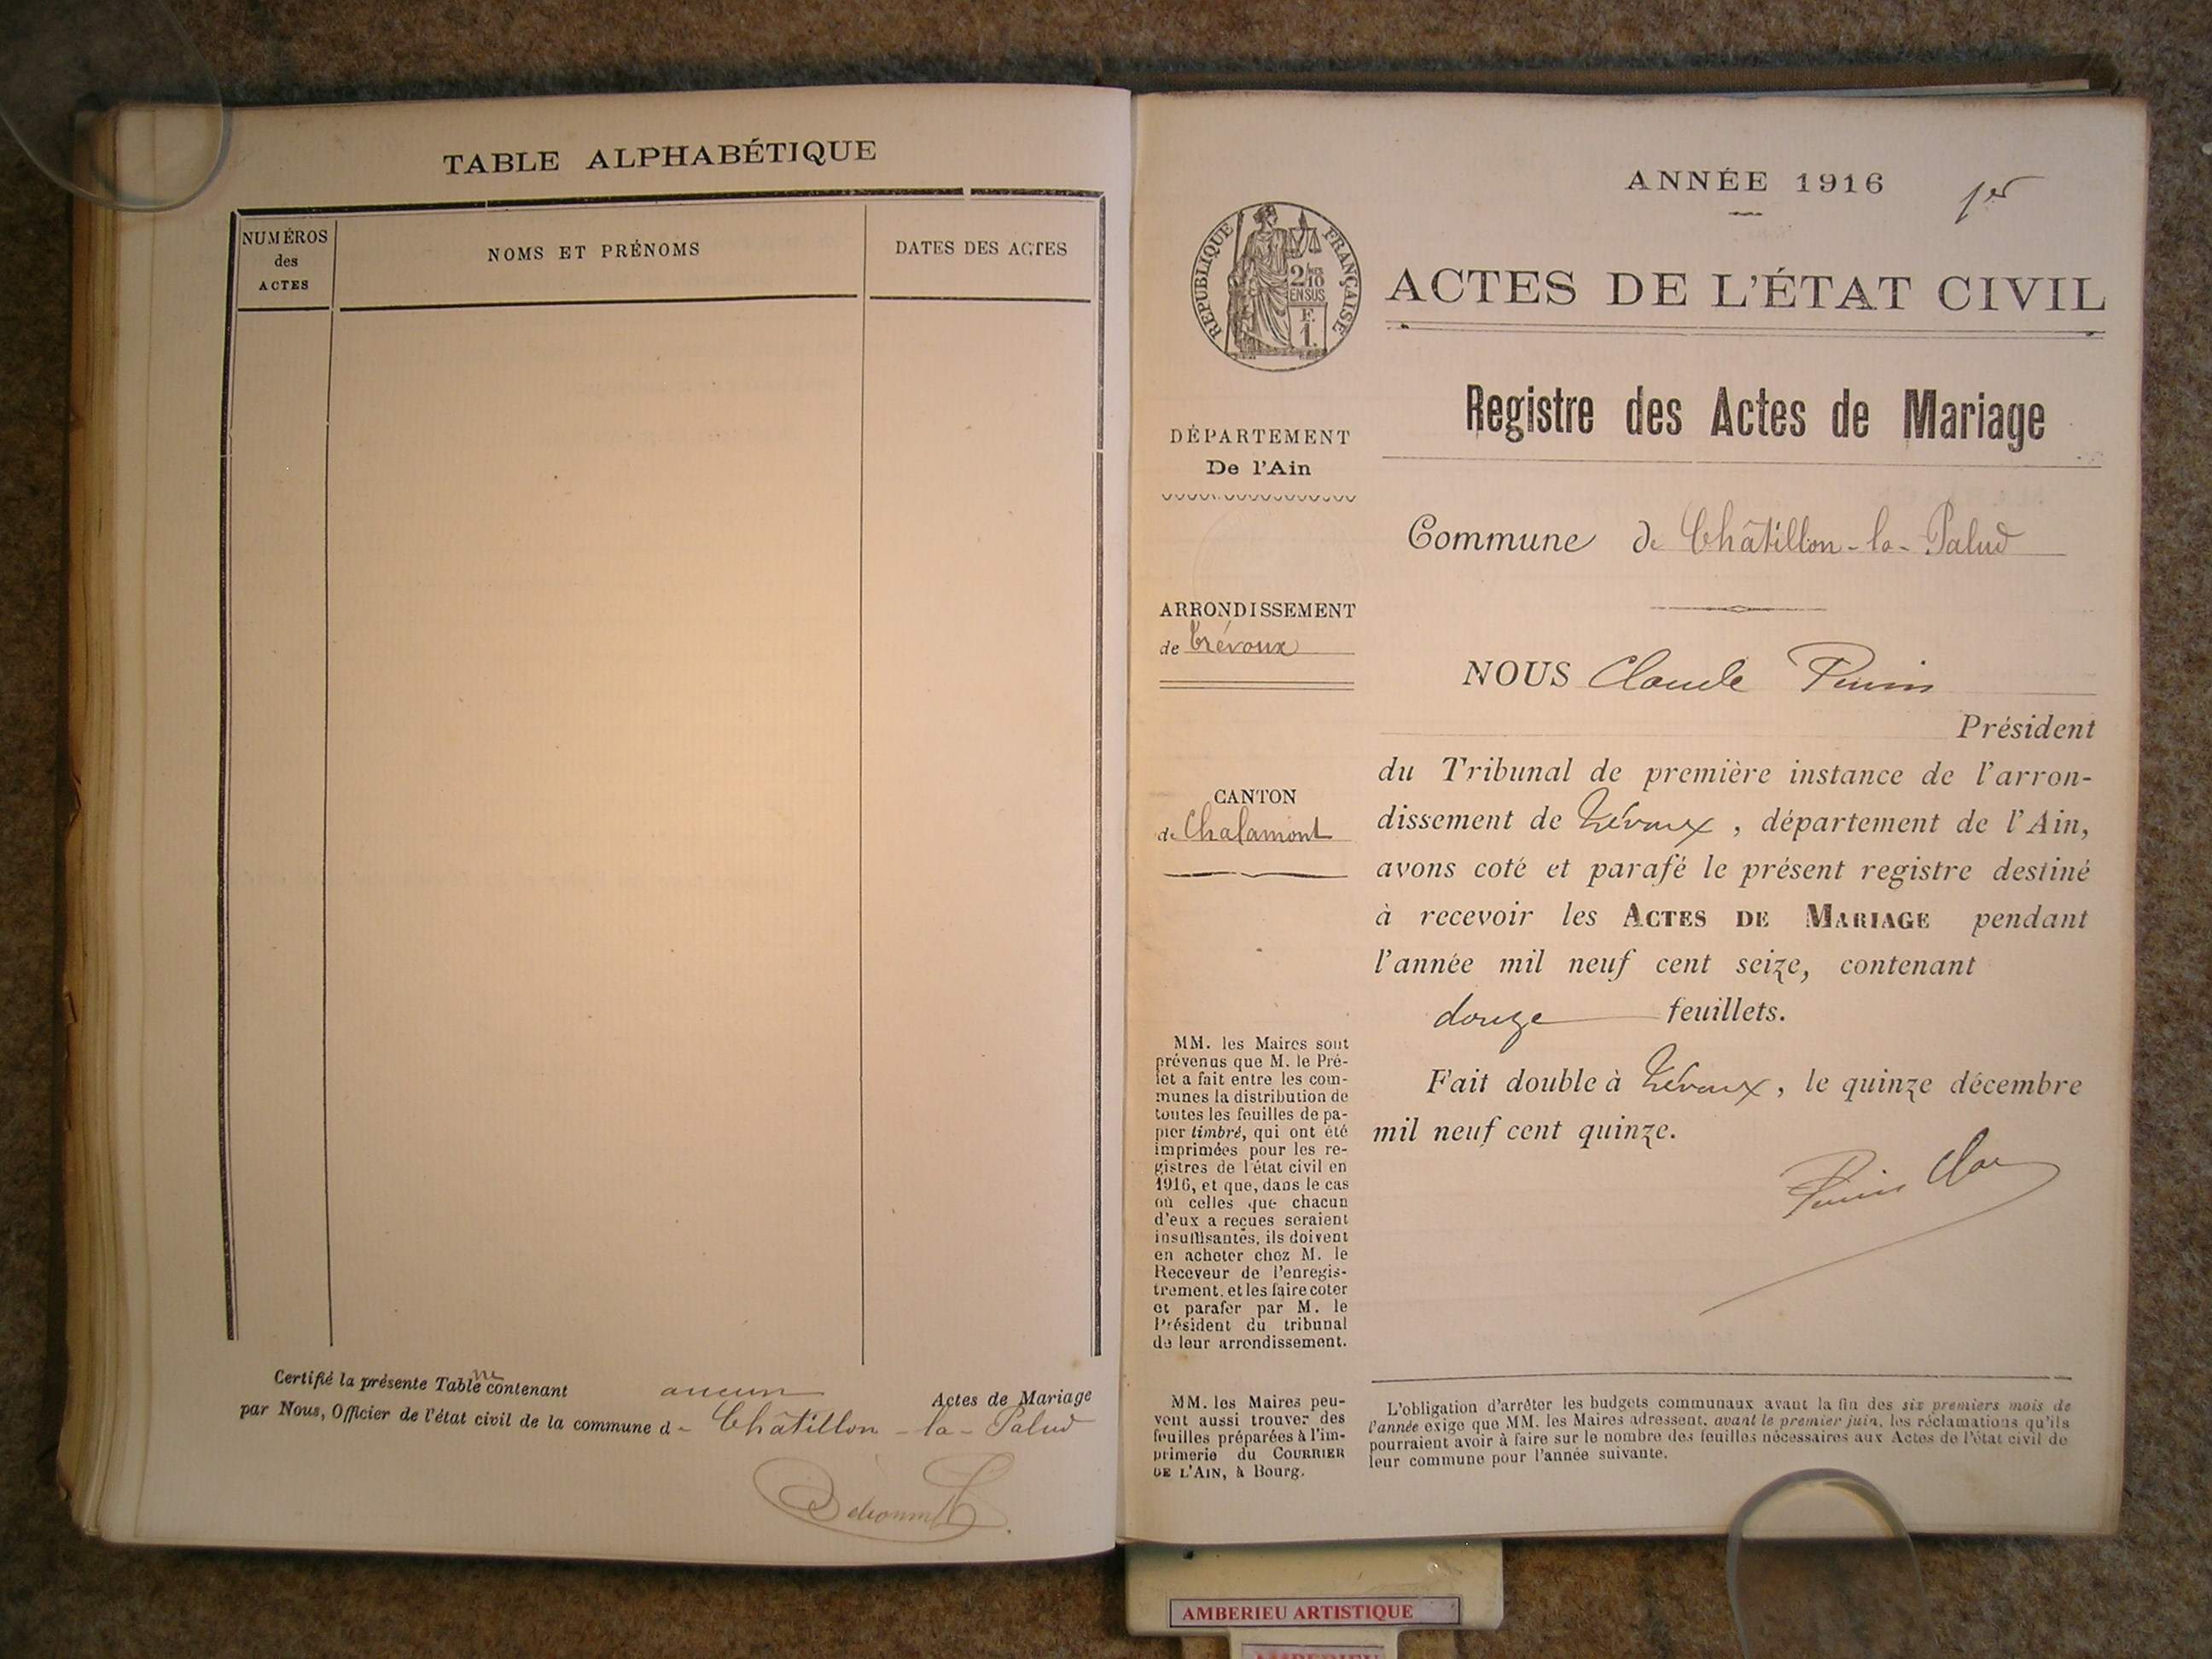 TABLE ALPHABÉTIQUE
NUMÉROS
des
ACTES
NOMS ET PRÉNOMS
DATES DES ACTES
Certifié la présente Table ne contenant aucun Actes de Mariage
par Nous, Officier de l'état civil de la commune de Châtillon-la-Palud
ANNÉE 1916
1er
RÉPUBLIQUE FRANÇAISE
2/10
EN SUS
F.
1.
ACTES DE L'ÉTAT CIVIL
Registre des Actes de Mariage
DÉPARTEMENT
De l'Ain
ARRONDISSEMENT
de Trévoux
CANTON
de Chalamont
MM. les Maires sont
prévenus que M. le Pré-
fet a fait entre les com-
munes la distribution de
toutes les feuilles de pa-
pier timbré, qui ont été
imprimées pour les re-
gistres de l'état civil en
1916, et que, dans le cas
où celles que chacun
d'eux a reçues seraient
insuffisantes, ils doivent
en acheter chez M. le
Receveur de l'enregis-
trement, et les faire coter
et parafer par M. le
Président du tribunal
de leur arrondissement.
MM. les Maires peu-
vent aussi trouver des
feuilles préparées à l'im-
primerie du COURRIER
DE L'AIN, à Bourg.
Commune de Châtillon-la-Palud
NOUS Claude
Président
du Tribunal de première instance de l'arron-
dissement de Trévoux, département de l'Ain,
avons coté et parafé le présent registre destiné
à recevoir les ACTES DE MARIAGE pendant
l'année mil neuf cent seize, contenant
douze feuillets.
Fait double à Trévoux, le quinze décembre
mil neuf cent quinze.
L'obligation d'arrêter les budgets communaux avant la fin des six premiers mois de
l'année exige que MM. les Maires adressent, avant le premier juin, les réclamations qu'ils
pourraient avoir à faire sur le nombre des feuilles nécessaires aux Actes de l'état civil de
leur commune pour l'année suivante.
AMBERIEU ARTISTIQUE
AMBERIEU